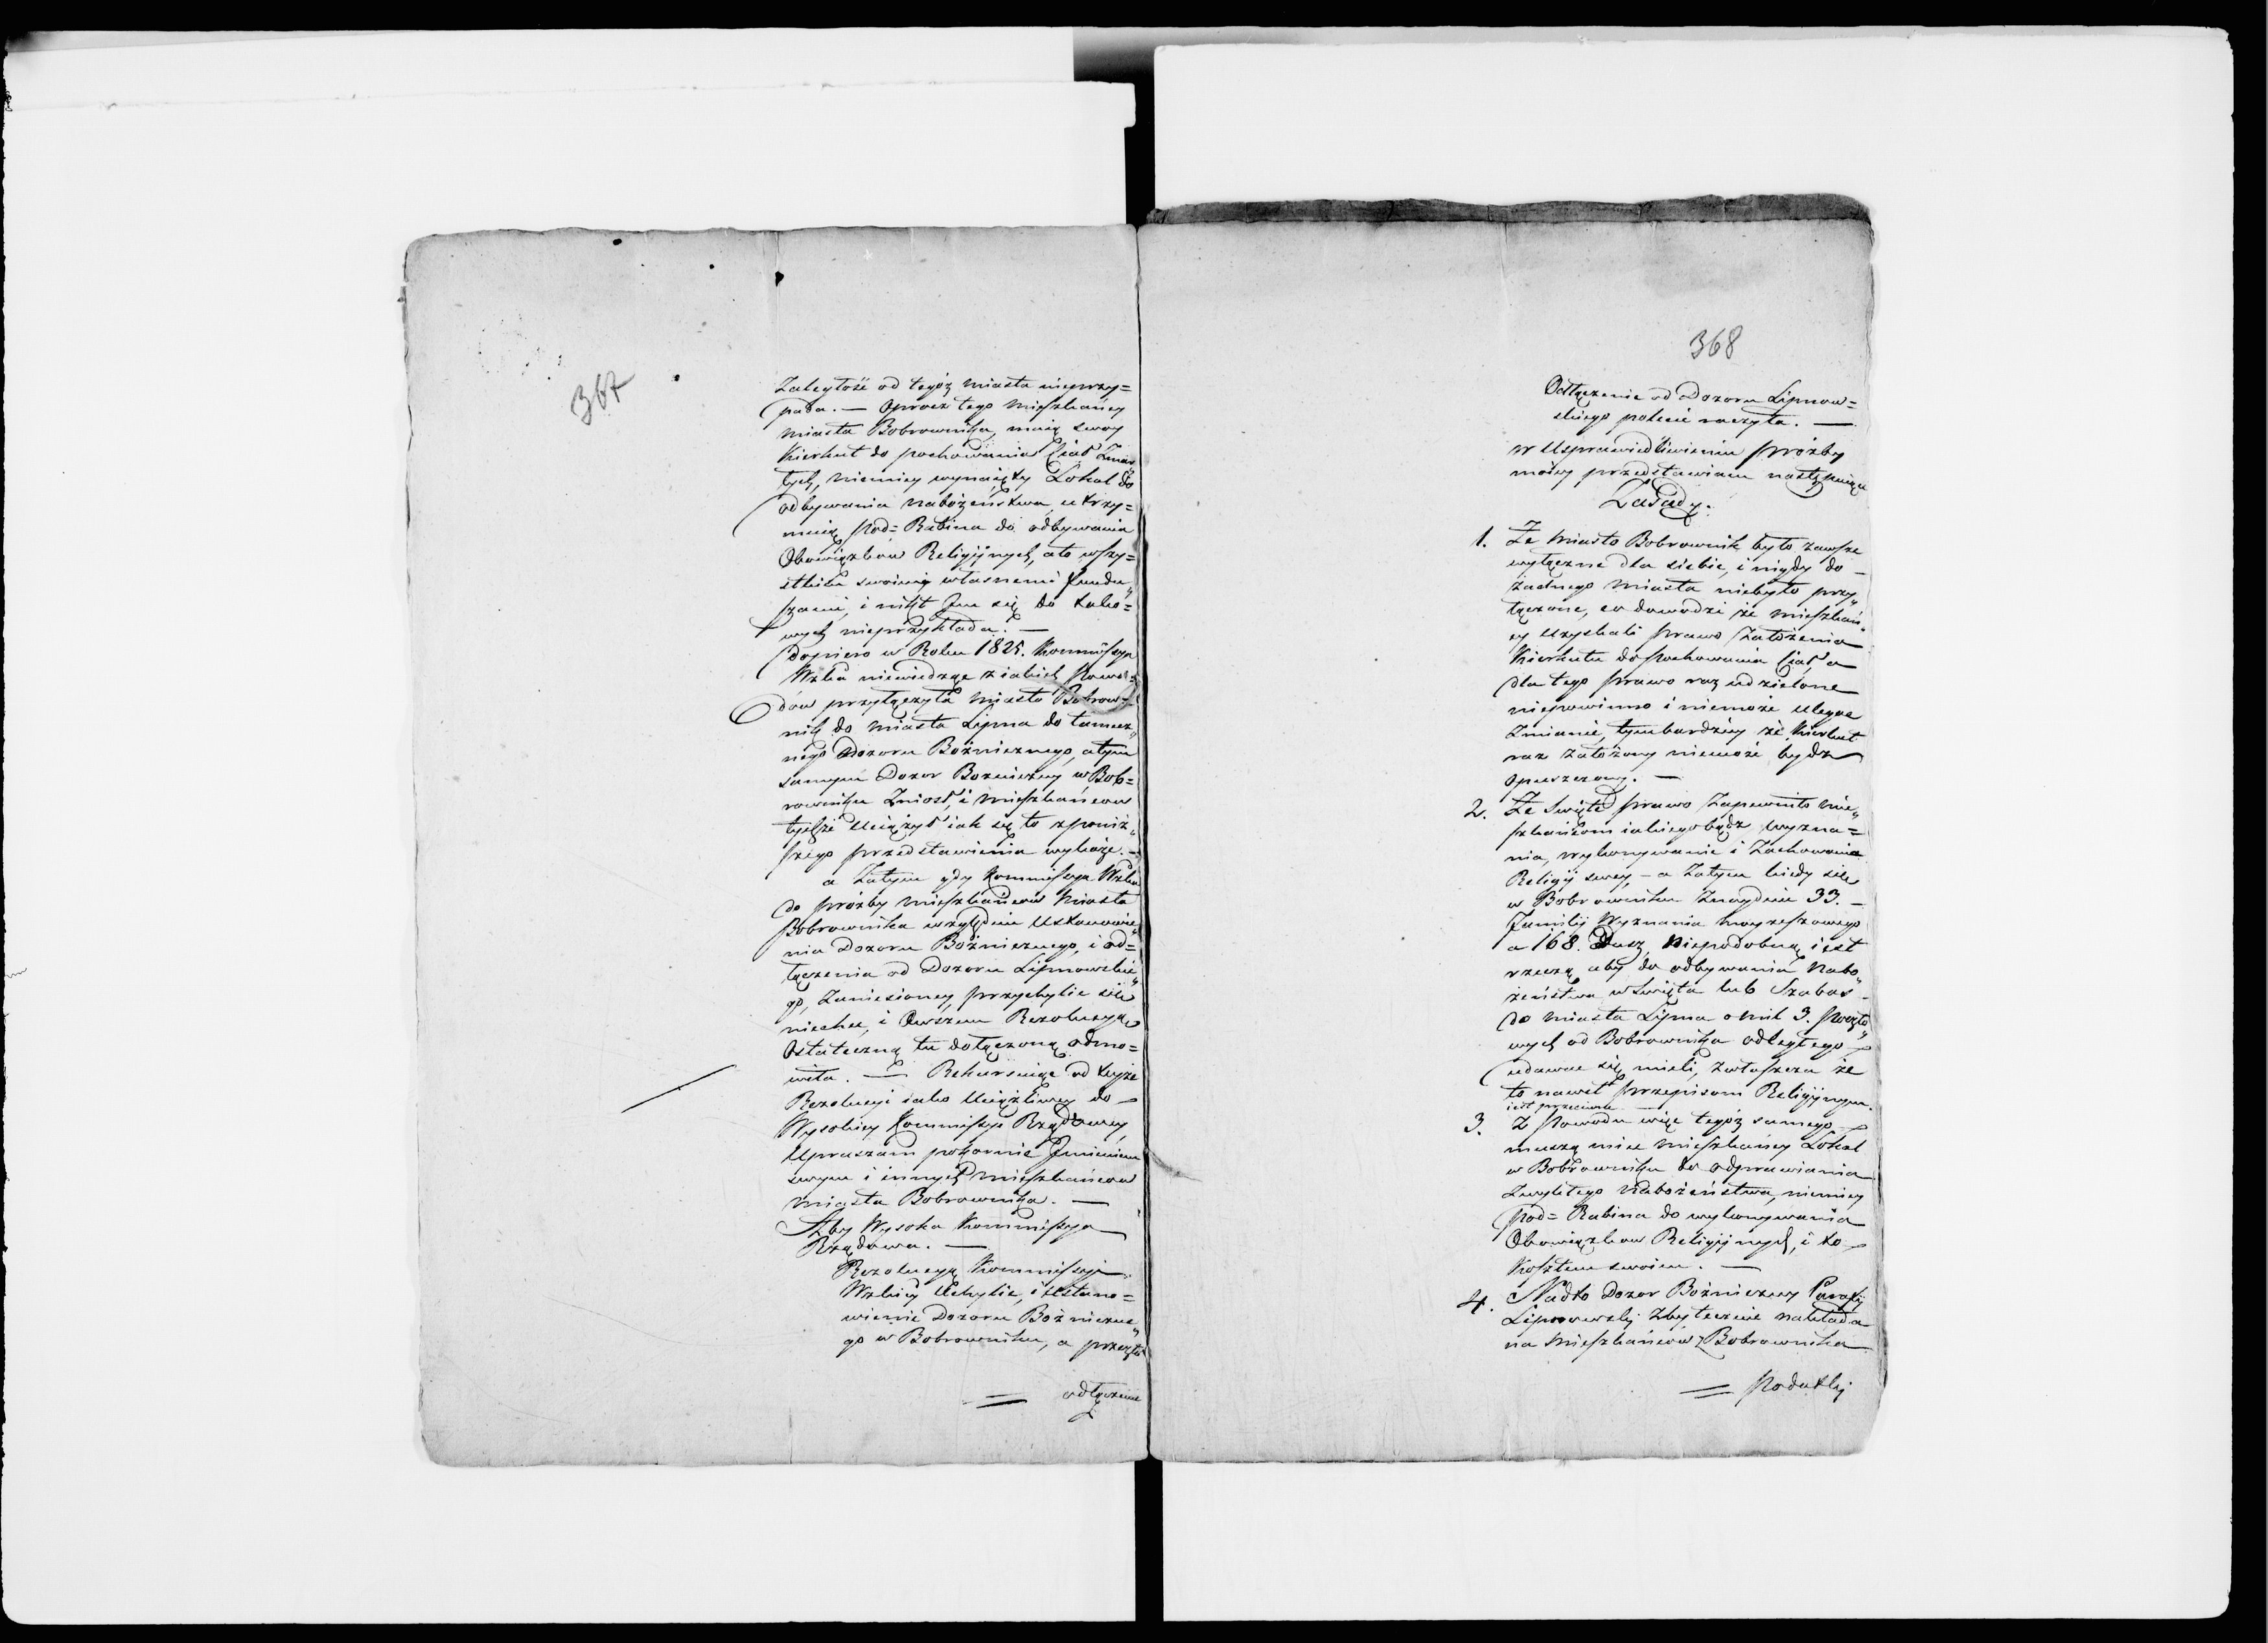 367
Zaległość od tegóż miasta nieprzy=
pada. — Oprocz tego Mieszkańcy
Miasta Bobrownika, maią swoy
Kierkut do pochowania Ciał Zmar„
łych, niemniey wynaięty Lokal do
odbywania nabożeństwa, utrzy=
muią Pod= Rabina do odbywania
Obowiązków Religijnych, ato wszy=
stkich swoimi własnemi fundu„
szami, i nikt Im się do tako=
wych nieprzykłada. —
Dopiero w Roku 1825. Kommissya
Wzka niewiedząc z iakich Powo=
dów przyłączyła miasto Bobrow=
nik do Miasta Lipna do tamecz„
nego Dozoru Bożnicznego, atym
samym Dozor Bożniczny w Bob=
rowniku Zniosł, i Mieszkańcow
tychże uciążył iak się to z poniż„
szego przedstawienia wykaże. —
a Zatym gdy Kommissya Wzka
do prożby Mieszkańców Miasta
Bobrownika względem Ustanowie„
nia Dozoru Bożnicznego, i od=
łączenia od Dozoru Lipnowskie„
go, Zaniesioney, przychylić się
niechce, i Owszem Rezolucyą
Ostateczną tu dołączoną odmo=
wiła. — Rekursuiąc od teyże
Rezolucyi iako Uciążliwey do
Wysokiey Kommissyi Rządowey
Upraszam pokornie Imieniem
swym i innych Mieszkańcow
Miasta Bobrownika. —
Ażby Wysoka Kommissya
Rządowa. —
Rezolucyą Kommissyi
Wzkiey Uchylić, i Ustano=
wienie Dozoru Bożniczne„
go w Bobrowniku, a przeto
= odłączenie
368
Odłączenie od Dozoru Lipnow=
skiego polecić raczyła. —
w Usprawiedliwieniu prożby
moiey przedstawiam następuiące
Zasady.
1. Że Miasto Bobrownik było zawsze
wyłączne dla siebie, i nigdy do
żadnego Miasta niebyło przy„
łączone, co dowodzi że Mieszkań„
cy Uzyskali prawo Założenia
Kierkutu do pochowania Ciał a
dla tego prawo raz udzielone
niepowinno i niemoże ulegać
Zmianie, tymbardziey że Kierkut
raz Założony niemoże bydz
opuszczony. —
2. Że Święte prawo Zapewniło Mie„
szkańcom iakiegobądz wyzna=
nia, wykonywanie i Zachowanie
Religij swey, — a Zatym kiedy się
w Bobrowniku Znayduie 33. —
Familij Wyznania Moyżeszowego
a 168. Dusz, Niepodobną iest
rzeczą aby do odbywania Nabo„
żeństwa w Święta lub Szabas
do miasta Lipna o mil 3. Poczto„
wych od Bobrownika odległego
udawać się mieli, zwłaszcza że
to nawet przepisom Religijnym
iest przeciwne
3. Z Powodu więc tegóż samego
muszą mieć Mieszkańcy Lokal
w Bobrowniku do odprawiania
Zwykłego Nabożeństwa, niemniey
Pod= Rabina do wykonywania
Obowiązkow Religijnych, i to
Kosztem swoim. —
4. Nadto Dozor Bożniczny Parafij
Lipnowskiej Zbytecznie nakłada
na Mieszkańców Bobrownika
= Podatki